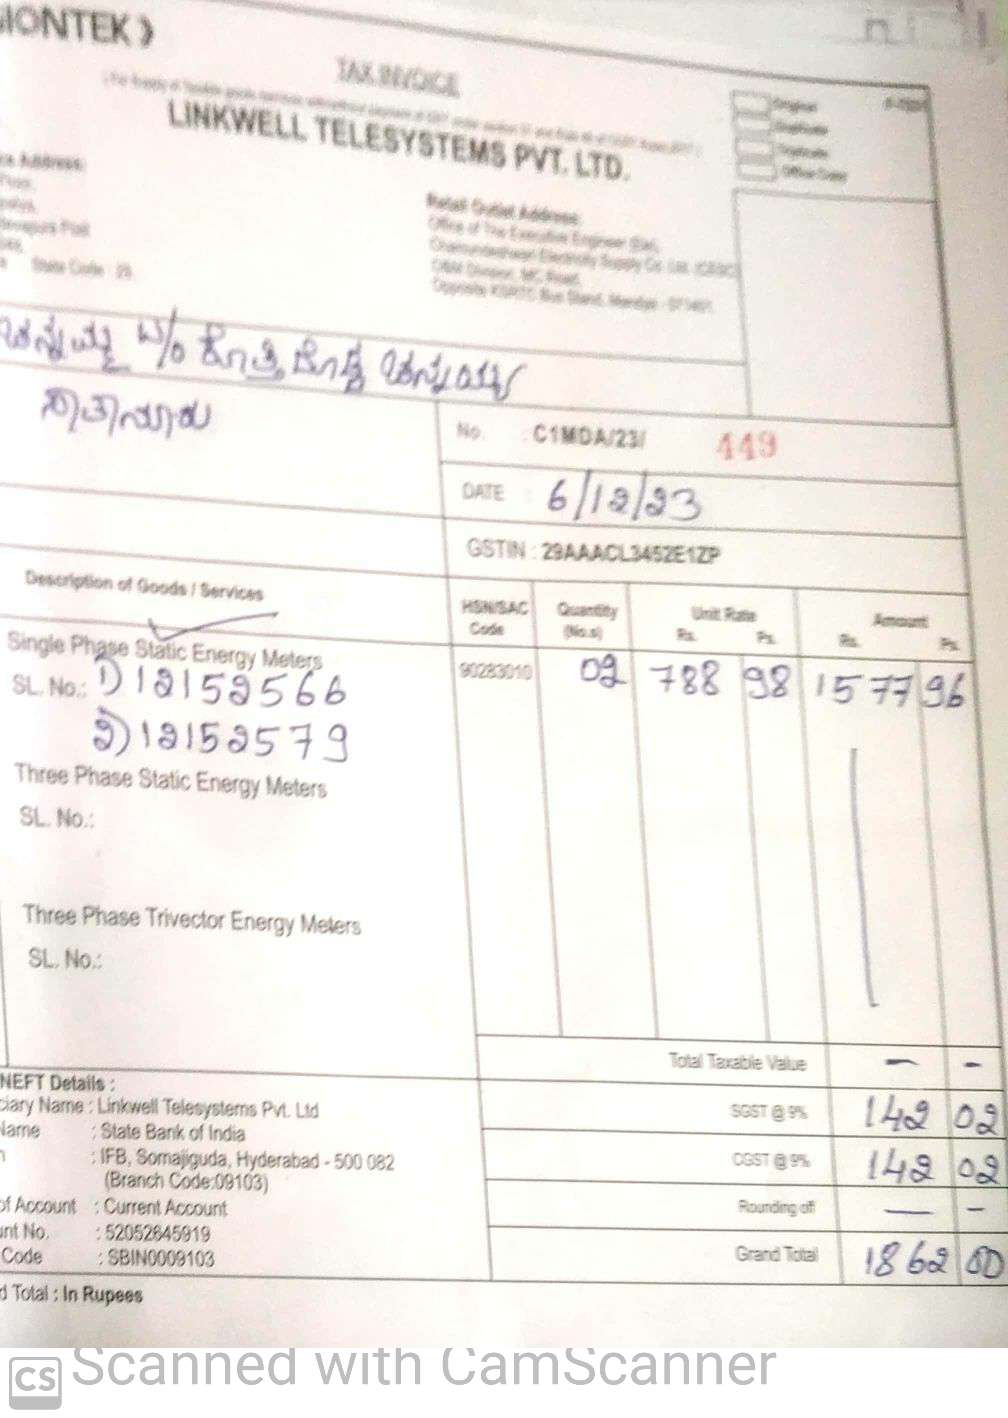 TAX INVOICE
LINKWELL TELESYSTEMS PVT. LTD.
Original
Duplicate
Triplicate
Office Copy
Address:
State Code : 29
Retail Outlet Address:
Office of The Executive Engineer (Ele),
Chamundeshwari Electricity Supply Co. Ltd.,
O&M Division, MC Road,
Opposite KSRTC Bus Stand, Mandya - 571401.
No. : C1MDA/23/ 449
DATE : 6/12/23
GSTIN : 29AAACL3452E1ZP
Description of Goods / Services
HSN/SAC Code
Quantity (No.s)
Unit Rate Rs. Ps.
Amount Rs. Ps.
Single Phase Static Energy Meters 90283010 02 788 98 1577 96
SL. No.: 1) 12152566
2) 12152579
Three Phase Static Energy Meters
SL. No.:
Three Phase Trivector Energy Meters
SL. No.:
Total Taxable Value — -
NEFT Details :
Name : Linkwell Telesystems Pvt. Ltd
SGST @ 9% 142 02
: State Bank of India
: IFB, Somajiguda, Hyderabad - 500 082
(Branch Code:09103)
CGST @ 9% 142 02
of Account : Current Account
Rounding off — -
No. : 52052645919
Code : SBIN0009103
Grand Total 1862 00
Total : In Rupees
CS Scanned with CamScanner